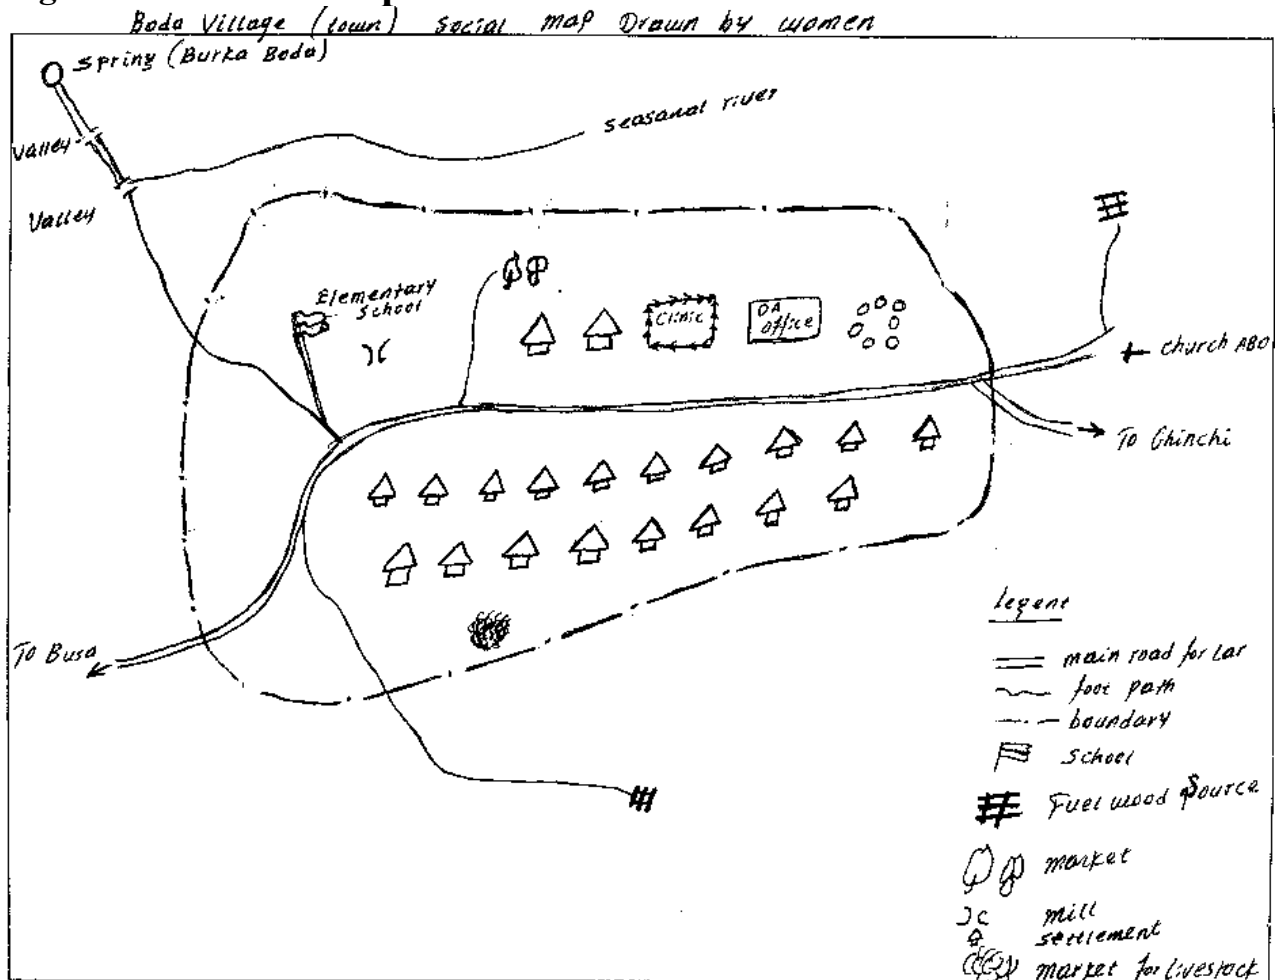 Boda Village (town) Social map Drawn by women
Spring (Burka Boda)
Valley
Valley
Seasanal river
Elementary
School
Clinic
DA
office
church ABO
To Ghinchi
To Busa
legent
main road for car
foot path
boundary
School
Fuel wood Source
market
mill
settlement
market for livestock